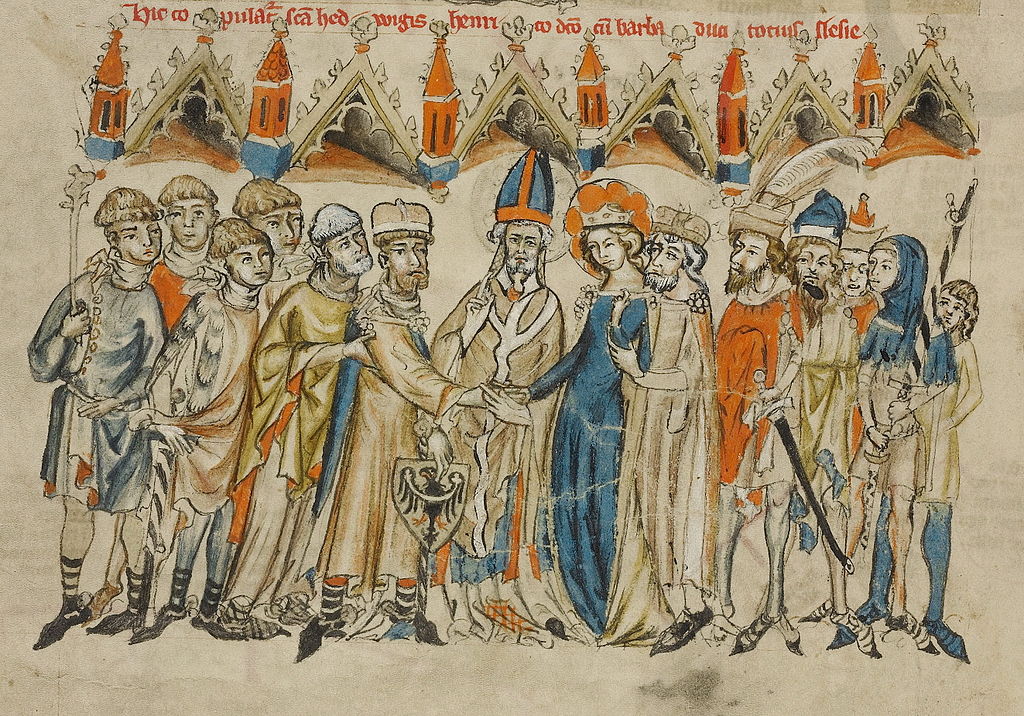 Hic co pulat᷑ scā hed wigis henri co dcō cū barba duci tocius slesie